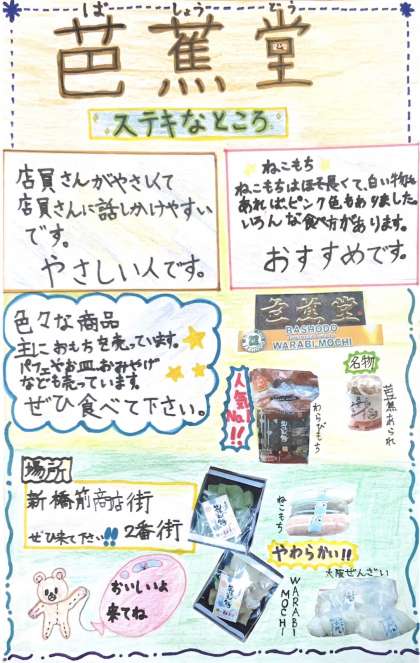 ばしょうどう
芭蕉堂
ステキなところ
店員さんがやさしくて
店員さんに話しかけやすい
です。
やさしい人です。
ねこもち
ねこもちはほそ長くて、白い物も
あれば、ピンク色もありました。
いろんな食べ方があります。
おすすめです。
色々な商品
主におもちを売っています。
パフェやお皿、おみやげ
なども売っています。
ぜひ食べて下さい。
芭蕉堂
BASHODO
WARABI-MOCHI
名物
人気
No.1!!
わらびもち
芭蕉あられ
場所
新橋前商店街
2番街
ぜひ来て下さい!!
ねこもち
やわらかい!!
大阪ぜんざい
WARABI
MOCHI
おいしいよ
来てね